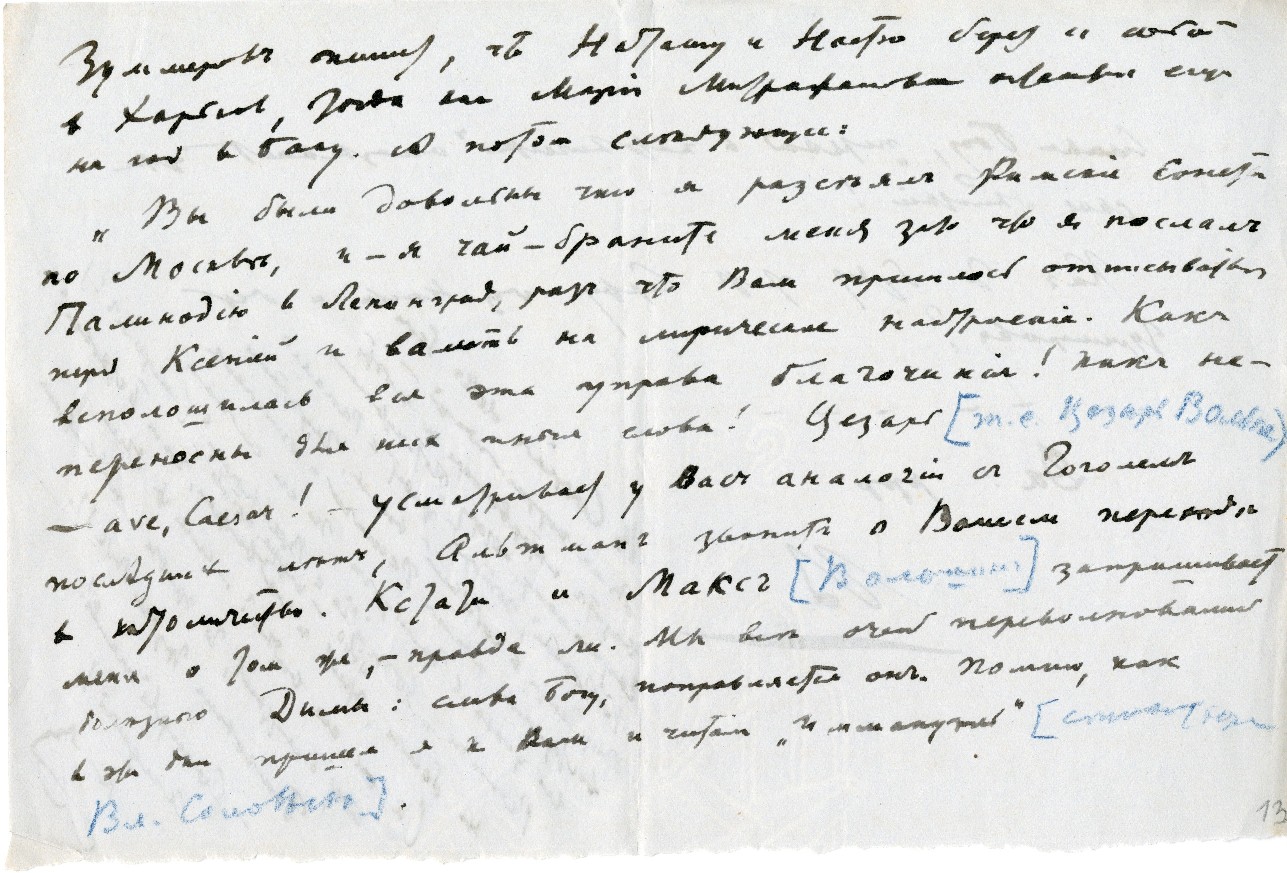 Зуммеровъ пишетъ, что Наташу и Настю берет съ собой
в Харьков, тогда как Марія Митрофановна остается еще
на год в Баку. А потом следующее:
„Вы были довольны что я разсѣялъ Римскіе Сонеты
по Москвѣ, и – я чай – браните меня зато что я послалъ
Палинодію в Ленинград, разъ что Вам пришлось отписываться
перед Ксеніей и валить на лирическое настроеніе. Какъ
всполошилась вся эта управа благочинія! Какъ не-
переносны для них иныя слова! Цезарь [т.е. Цезарь Вольпе]
– ave, Caesar! – усматривает у Васъ аналогіи съ Гоголемъ
последних летъ, Альтманъ звонитъ о Вашем переходѣ
в католичество. Кстати и Максъ [Волошинъ] запрашивает
меня о том же, – правда ли. Мы всѣ очень переволновались
болезнью Димы: слава Богу, поправляется онъ. Помню, как
в эти дни пришел я к Вам и читали „Иммануэль" [стихотворе
Вл. Соловьева].
13